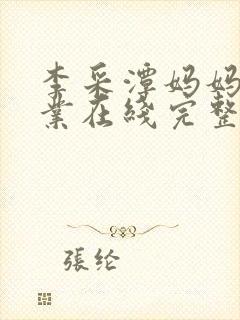 李采潭妈妈
業在綫完整
張纶